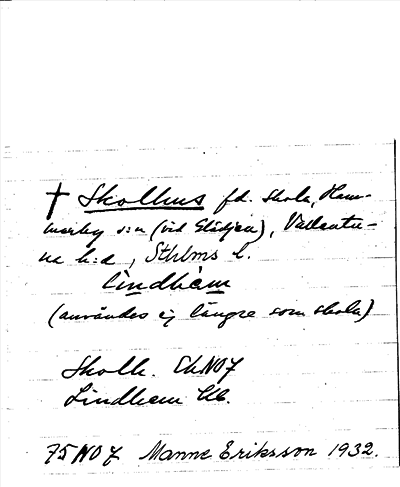 † Skolhus f.d. skola, Ham-
marby s:n (vid Glädjen), Vallentu-
na h:d, Sthlms l.
lindhàm
(användes ej längre som skola)
Skolh. EkNO7
Lindhem Ek.
75 NO 7 Manne Eriksson 1932.